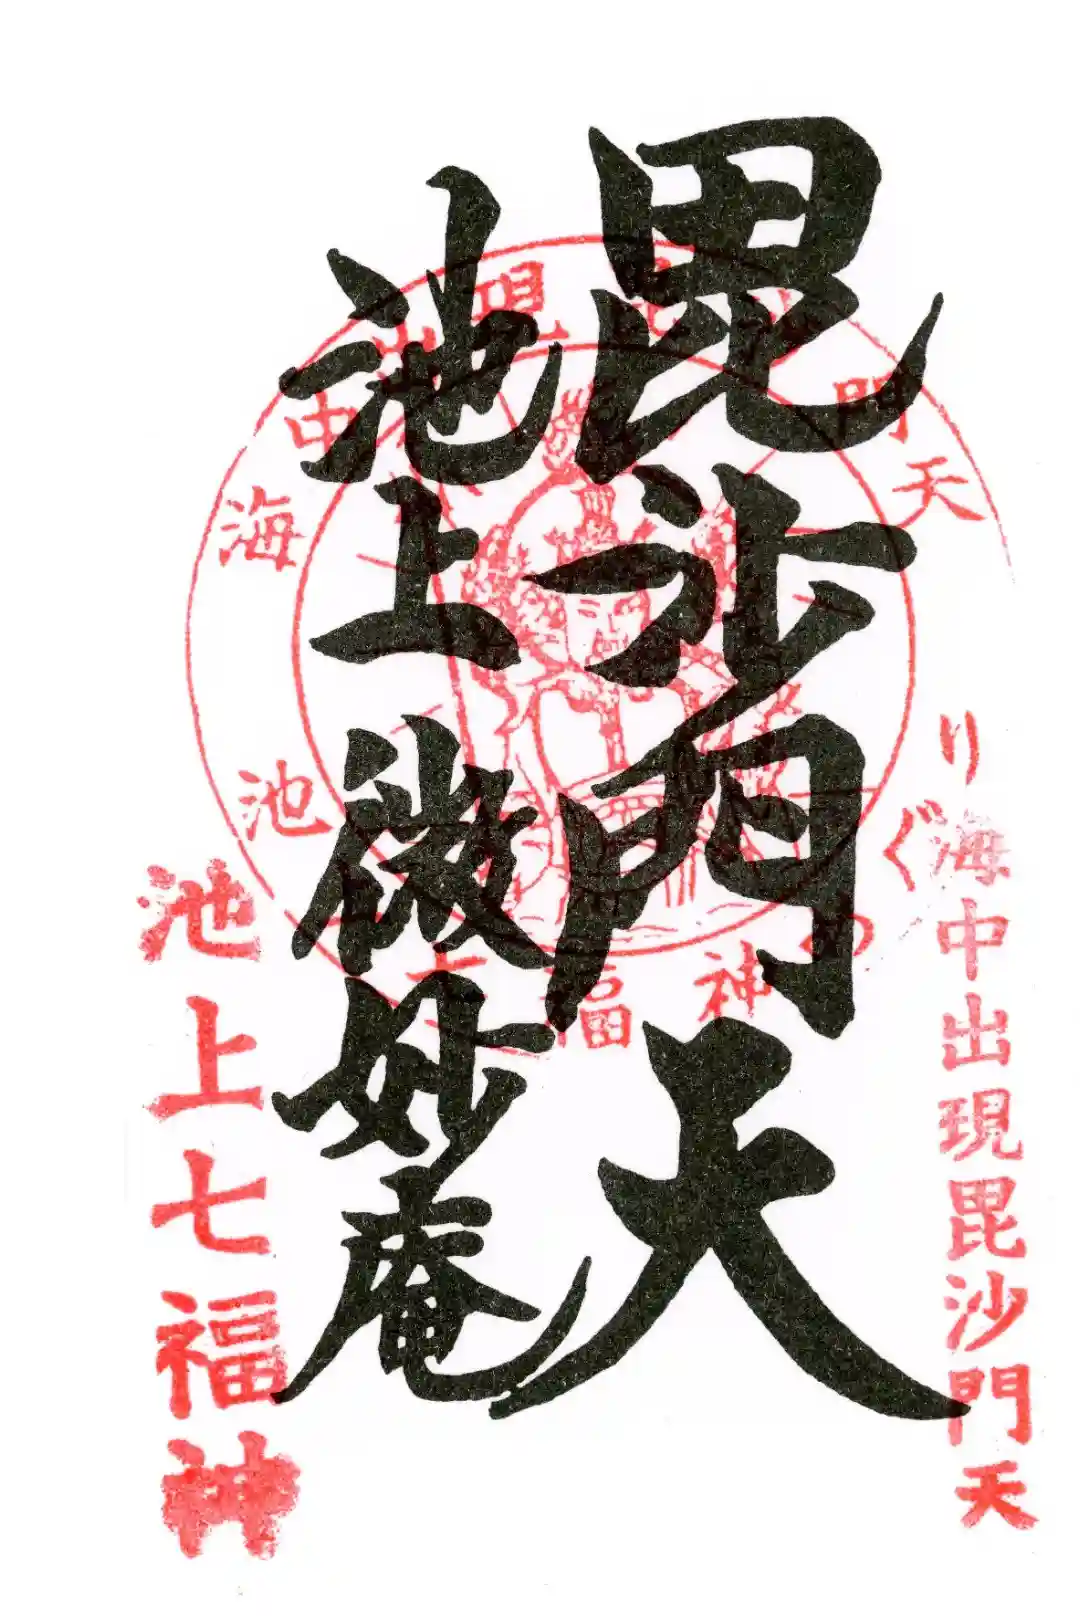 海中出現毘沙門天
毘沙門天
池上微妙庵
池上七福神
海中出現毘沙門天
池上七福神めぐり